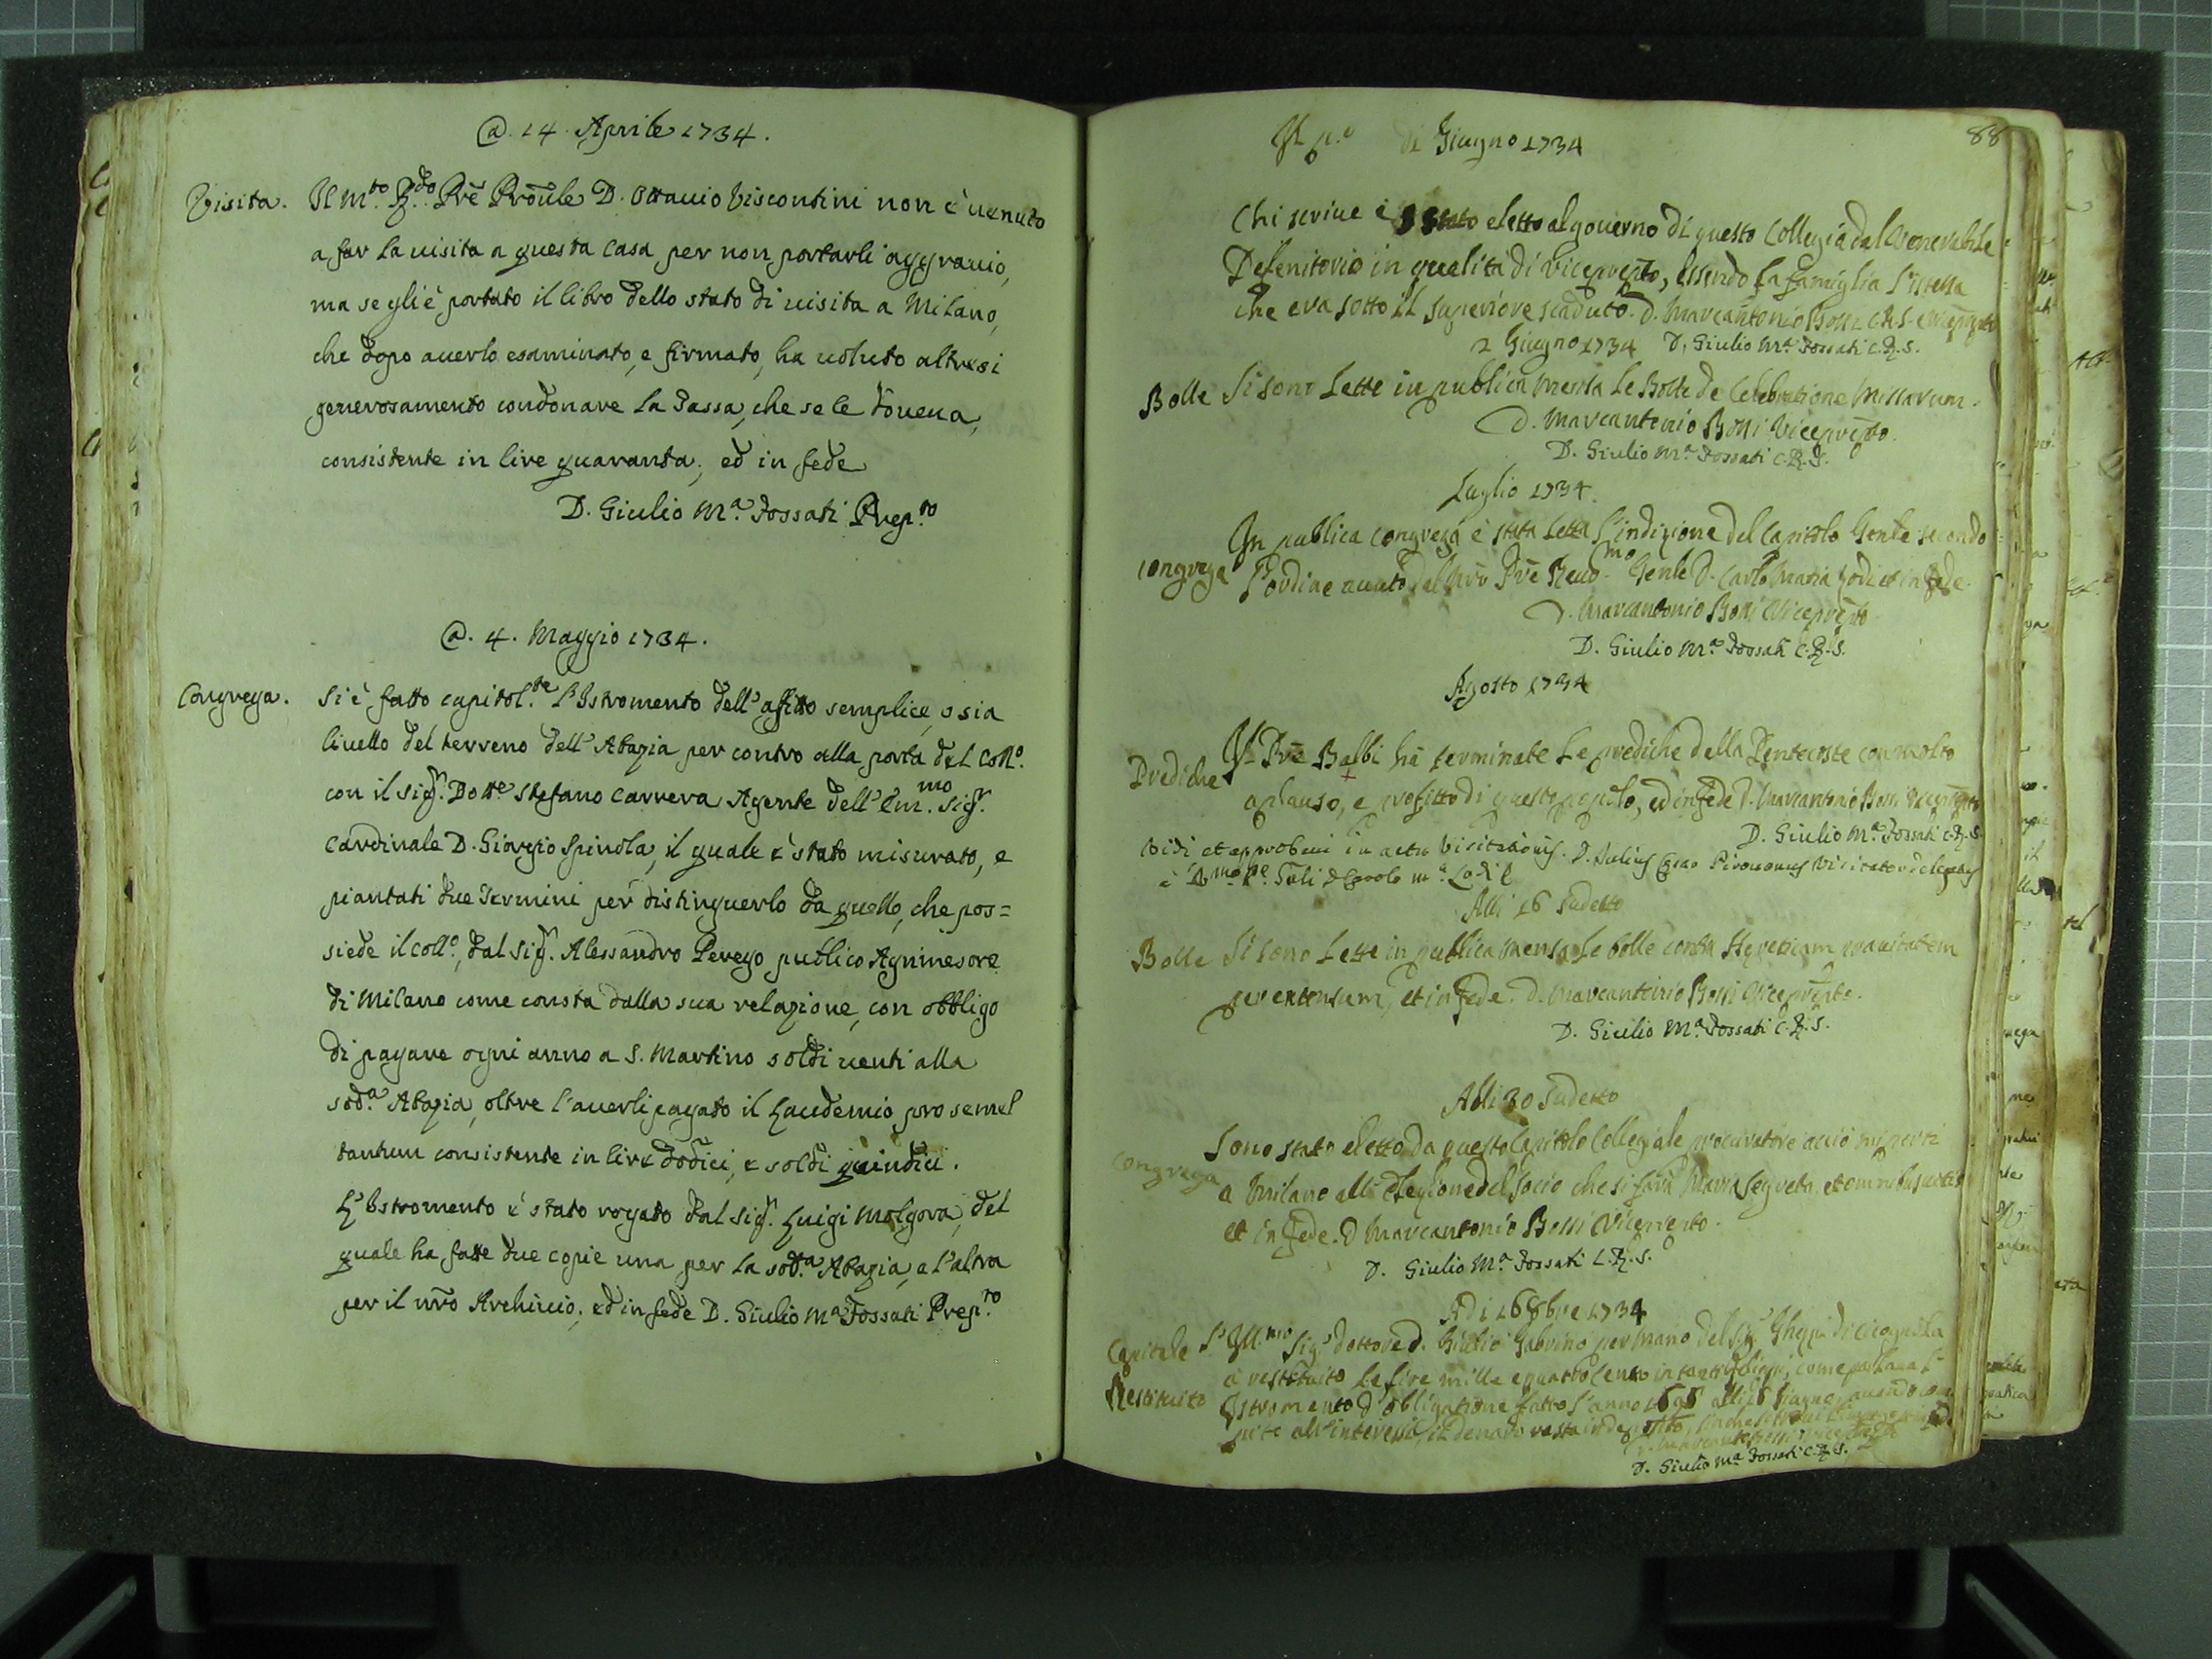 @. 14. Aprile 1734.
Visita. Il M.to R.do Pre Proule D. Ottauio Viscontini non è uenuto
a far la uisita a questa Casa per non portarli aggrauio,
ma se gli è portato il libro dello stato di uisita a Milano,
che dopo auerlo esaminato, e firmato, ha uoluto altresi
generosamente condonare la Tassa, che se le doueua,
consistente in lire quaranta; ed in fede
D. Giulio M.a Fossati Prep.to
@. 4. Maggio 1734.
Congrega. Si è fatto capitol.te l'Istromento dell'affitto semplice, o sia
liuello del terreno dell'Abazia per contro alla porta del Coll.o
con il Sig.r Dott.e Stefano Carrera Agente dell'Em.mo Sig.r
Cardinale D. Giorgio Spinola, il quale è stato misurato, e
piantati due Termini per distinguerlo da quello, che pos=
siede il Coll.o, dal Sig.r Alessandro Perego publico Agrimesore
di Milano come consta dalla sua relazione, con obbligo
di pagare ogni anno a S. Martino soldi uenti alla
sod.a Abazia, oltre l'auerli pagato il Laudemio pro semel
tantum consistente in lire dodici, e soldi quindici.
L'Istromento è stato rogato dal Sig.r Luigi Molgora, del
quale ha fatte due copie una per la sod.a Abazia, e l'altra
per il nro Archiuio; ed in fede D. Giulio M.a Fossati Prep.to
88
Il p.o di Giugno 1734
Chi scriue è stato eletto al gouerno di questo Collegio dal Venerabile
Defenitorio in qualità di Viceprepto, essendo la famiglia l'istessa
che era sotto il Superiore scaduto. D. Marcantonio Bossi C.R.S. Viceprepto
2 Giugno 1734 D. Giulio M.a Fossati C.R.S.
Bolle Si sono Lette in publica Mensa le Bolle de Celebratione Missarum.
D. Marcantonio Bossi Viceprepto.
D. Giulio M.a Fossati C.R.S.
Luglio 1734.
In publica congrega è stata Letta l'indizione del Capitolo Genle secondo
congrega l'ordine auuto dal Nro Pre Reud.mo Genle D. Carlo Maria Lodi et in fede.
D. Marcantonio Bossi Viceprepto
D. Giulio M.a Fossati C.R.S.
Agosto 1734
Prediche Il Pre Balbi hà terminate Le prediche della Pentecoste con molto
aplauso, e profitto di questo popolo, ed in fede D. Marcantonio Bossi Viceprepto
D. Giulio M.a Fossati C.R.S.
Vidi et approbaui in actu Visitationis. D. Julius Visitator delegatus
à R.mo P.e Gnli D. Carolo M.a Lodi
Alli 16 Sudetto
Bolle Si sono Lette in publica Mensa Le bolle contra Hereticam prauitatem
per extensum, et in fede. D. Marcantonio Bossi Viceprepto.
D. Giulio M.a Fossati C.R.S.
Alli 30 Sudetto
Sono stato eletto da questo Capitolo Collegiale procuratore acciò mi porti
congrega a Milano alla elezione del Socio che si farà in
et in fede. D. Marcantonio Bossi Viceprepto.
D. Giulio M.a Fossati C.R.S.
Adi 16 8bre 1734
Capitale L'Ill.mo Sig.r dottore d. Giulio per mano del Sig.r di Cicognola
Restituito à restituito Le lire mille e quatrocento in tanti come l'
Istromento d'obligatione fatto l'anno alli 6 Giugno, auendo
all'interessi, il denaro resta in deposito,
D. Giulio M.a Fossati C.R.S.